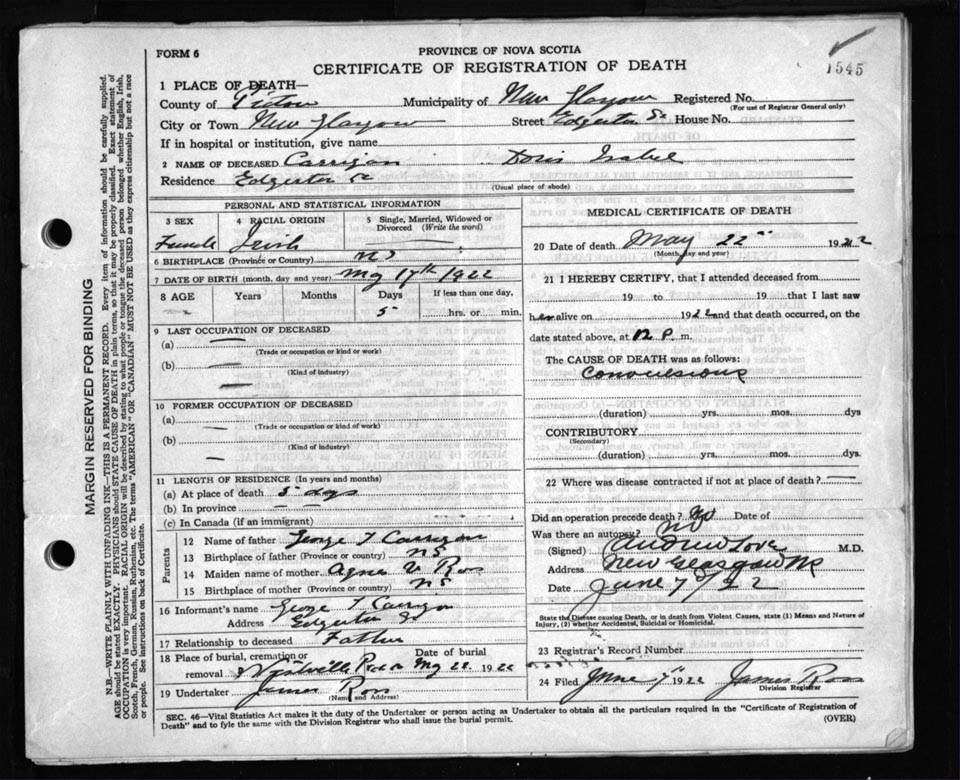 FORM 6
PROVINCE OF NOVA SCOTIA
CERTIFICATE OF REGISTRATION OF DEATH
1545
1 PLACE OF DEATH—
County of Pictou Municipality of New Glasgow Registered No.
(For use of Registrar General only)
City or Town New Glasgow Street Edgerton St House No.
If in hospital or institution, give name
2 NAME OF DECEASED Carrigan Doris Isabel
Residence Edgerton St
(Usual place of abode)
PERSONAL AND STATISTICAL INFORMATION
3 SEX 4 RACIAL ORIGIN 5 Single, Married, Widowed or Divorced (Write the word)
Female Irish
6 BIRTHPLACE (Province or Country) NS
7 DATE OF BIRTH (month, day and year) My 17th 1922
8 AGE Years Months Days If less than one day,
5 hrs. or min.
9 LAST OCCUPATION OF DECEASED
(a)
(Trade or occupation or kind or work)
(b)
(Kind of industry)
10 FORMER OCCUPATION OF DECEASED
(a)
(Trade or occupation or kind of work)
(b)
(Kind of industry)
11 LENGTH OF RESIDENCE (In years and months)
(a) At place of death 5 days
(b) In province
(c) In Canada (if an immigrant)
Parents
12 Name of father George T Carrigan
13 Birthplace of father (Province or country) NS
14 Maiden name of mother Agnes Ross
15 Birthplace of mother (Province or country) NS
16 Informant's name George T Carrigan
Address Edgerton St
17 Relationship to deceased Father
18 Place of burial, cremation or removal Westville Road Date of burial My 23 1922
19 Undertaker James Ross
(Name and Address)
MEDICAL CERTIFICATE OF DEATH
20 Date of death May 22 1922
(Month, day and year)
21 I HEREBY CERTIFY, that I attended deceased from
19 to 19 that I last saw
her alive on 1922 and that death occurred, on the
date stated above, at 12 P. m.
The CAUSE OF DEATH was as follows:
Convulsions
(duration) yrs. mos. dys
CONTRIBUTORY
(Secondary)
(duration) yrs. mos. dys
22 Where was disease contracted if not at place of death?
Did an operation precede death? No Date of
Was there an autopsy? No
(Signed) Andrew Love M.D.
Address New Glasgow NS
Date June 7/22
State the Disease causing Death, or in death from Violent Causes, state (1) Means and Nature of Injury, (2) whether Accidental, Suicidal or Homicidal.
23 Registrar's Record Number
24 Filed June 7 1922 James Ross
Division Registrar
SEC. 46—Vital Statistics Act makes it the duty of the Undertaker or person acting as Undertaker to obtain all the particulars required in the "Certificate of Registration of
Death" and to fyle the same with the Division Registrar who shall issue the burial permit.
(OVER)
MARGIN RESERVED FOR BINDING
N.B.—WRITE PLAINLY WITH UNFADING INK—THIS IS A PERMANENT RECORD. Every item of information should be carefully supplied.
AGE should be stated EXACTLY. PHYSICIANS should STATE CAUSE OF DEATH in plain terms, so that it may be properly classified. Exact statement of
OCCUPATION is very important. RACIAL ORIGIN will be described by stating to what people or tongue the deceased person belonged whether English, Irish,
Scotch, French, German, Russian, Ruthenian, etc. The terms "AMERICAN" OR "CANADIAN" MUST NOT BE USED as they express citizenship but not a race
or people. See instructions on back of Certificate.